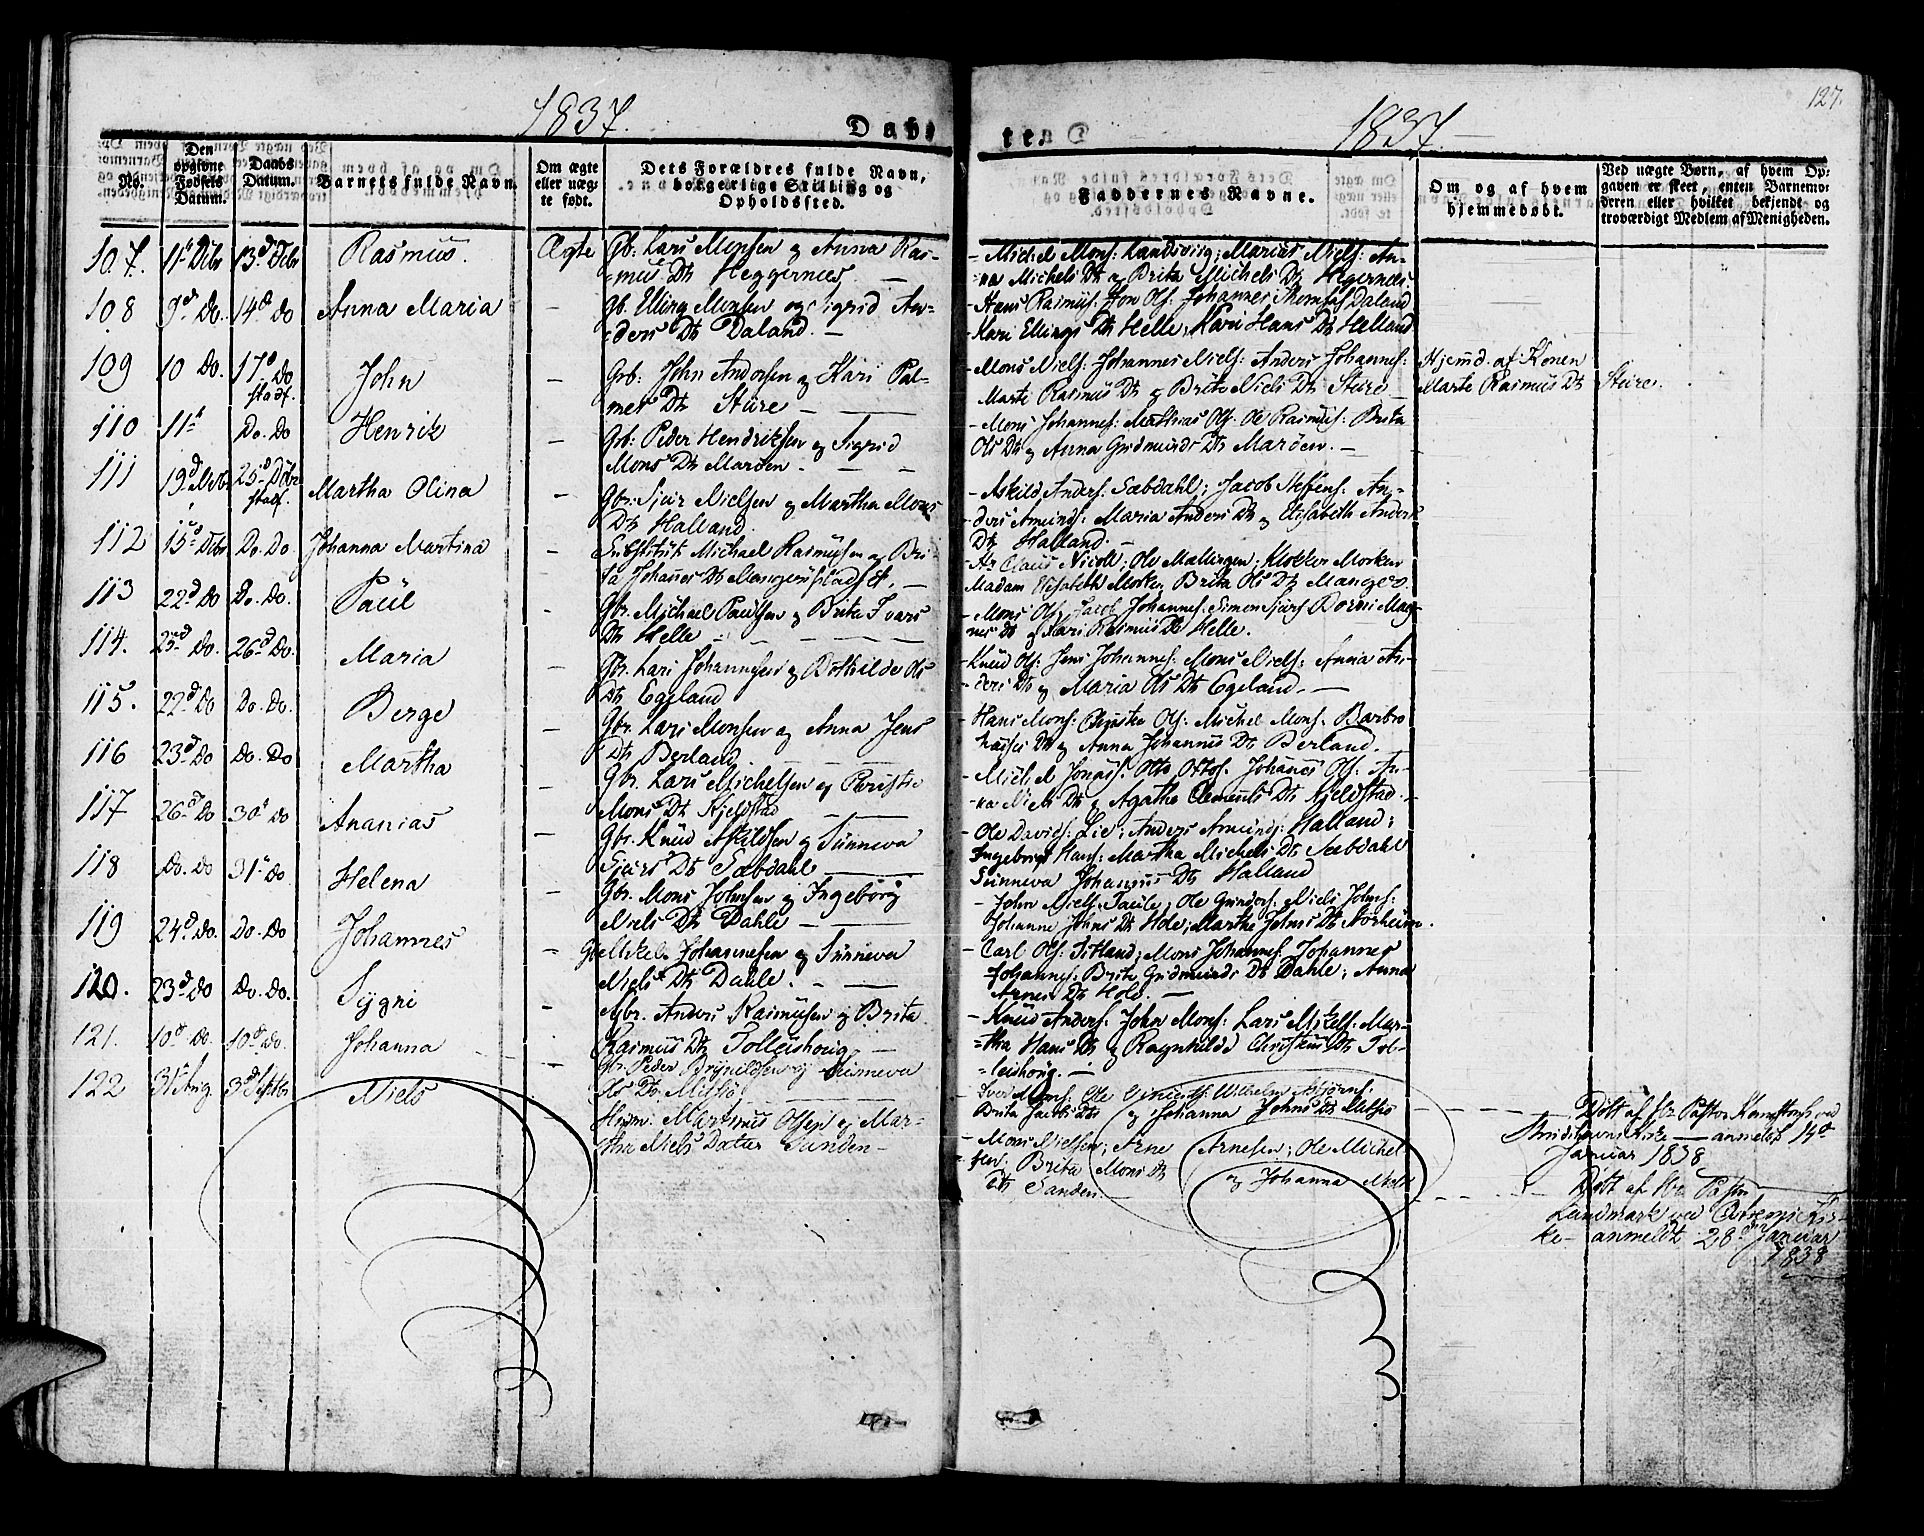 127.
1837.
1837
Døbte
No.
Den opgivne Fødsels Datum.
Daabs Datum.
Barnets fulde Navn.
Om ægte eller uæg-te født.
Dets Forældres fulde Navn, borgerlige Stilling og Opholdssted.
Faddernes Navne.
Om og af hvem hjemmedøbt.
Ved uægte Børn, af hvem Op-gaven er skeet, enten Barnemo-deren eller hvilket bekjendt og troværdigt Medlem af Menigheden.
107. 11t Dcbr 13d Dcbr Rasmus. Ægte Gb. Lars Monsen og Anna Ras-
mus Dt Heggernæs. —
- Michel Mons: Landsviig; Marius Niels: An-
na Michels Dt og Brita Michels Dt Hegernæs.
108 9de Do. 14d Do Anna Maria — Gb. Elling Monsen og Sigrid An-
ders Dt Daland. —
- Hans Rasmus: Jon Ols: Johannes Thomas: Daland
Kari Ellings Dt Helle; Kari Hans Dt Helland
109 10 Do. 17d Do stadf. John — Grb: John Andersen og Kari Pal-
mer Dt Sture —
Mons Niels: Johannes Niels: Anders Johannes:
Marte Rasmus Dt og Brite Niels Dt Sture
Hjemd. af Konen
Marte Rasmus Dt Sture.
110 11t Do. Do Henrik — Grb: Peder Hendriksen og Sigrid
Mons Dt Marøen. —
- Mons Johannes: Mathias Ols: Ole Rasmus: Brita
Ols Dt og Anna Gudmunds Dt Marøen. —
111 19d Novbr 25d Dcbr stadf. Martha Olina — Gbr: Sjur Nielsen og Martha Mons
Dt Halland.
- Askild Anders: Sæbdahl; Jacob Steffens: An-
ders Amunds: Maria Anders Dt og Elisabeth Anders
Dt Halland. —
112 15d Dcbr Do. Do. Johanna Martina — Substitut Michael Rasmusen og Bri-
ta Johannes Dt Mangerspladset. —
- Hr Claus Nicoll; Ole Mallingen; Klokker Morken
Madam Elisabeth Morken Brita Ols Dt Manger.
113 22d Do Do. Do. Paul — Gbr: Michael Paulsen og Brita Ivars
Dt Helle —
- Mons Ols: Jacob Johannes: Simon Sjurs: Dorni Mag-
nes Dt og Kari Rasmus Dt Helle.
114. 23d Do. 26d Do. Maria — Gbr. Lars Johannesen og Bothilde Ols
Dt Egeland
- Knud Ols: Jens Johannes: Mons Niels: Anna An-
ders Dt og Maria Ols Dt Egeland. —
115. 22d Do Do. Do. Berge — Gbr. Lars Monsen og Anna Jens
Dt Berland
- Hans Mons: Ols: Michel Mons: Barbro
Dt og Anna Johannes Dt Berland.
116 23d Do Do. Do Martha — Gbr. Lars Michelsen og Christi
Mons Dt Kjeldstad —
- Michel Otto Ottos: Johannes Ols: An-
na Niels Dt og Agathe Clements Dt Kjeldstad.
117 26d Do 30t Do Ananias — Gbr. Knud Askildsen og Sunneva
Sjurs Dt Sæbdahl —
- Ole Davids: Lie; Anders Amunds: Halland;
Ingeborg Hans: Martha Michels Dt Sæbdahl
Sunneva Johannes Dt Halland
118 Do. Do 31t Do Helena Gbr. Mons Johnsen og Ingeborg
Niels Dt Dahle —
- John Niels: Ole Niels Johns:
Johanne Johns Dt Hole; Marthe Johns Dt Norheim.
119 24d Do. Do. Do Johannes — Johannesen og Sunneva
Niels Dt Dahle. —
- Carl Ols: Mons Johannes: Johannes
Johannes: Brite Gudmunds Dt Dahle; Anna
Arnes Dt Hole. —
120. 23d Do Do. Do. Sygni — Gbr. Anders Rasmusen og Brita
Rasmus Dt Tolleishoug. —
- Knud Anders: John Mons: Lars Mikels: Mar-
tha Hans Dt og Ragnhilde Dt Tol-
leishoug. —
121. 10d Do. 10d Do. Johanna — Gbr. Peder Brynildsen og Sunneva
Ols Dt
Mons: Ole Wilhelm
Brita Jacobs Dt og Johanna Johns Dt
Døbt af Hr Pastor ved
Kirke — anmeldt 14d
Januar 1838
122 31t Aug. 3d Septbr Niels Huusm: Martinus Olsen og Mar-
tha Niels Datter Sanden —
- Mons Nielsen; Arne Arnesen; Ole Michel-
sen; Brita Mons Dt og Johanna Niels
Dt Sanden.
Døbt af Hr Pastor
Landmark ved Kir-
ke — anmeldt 28d Januar
1838